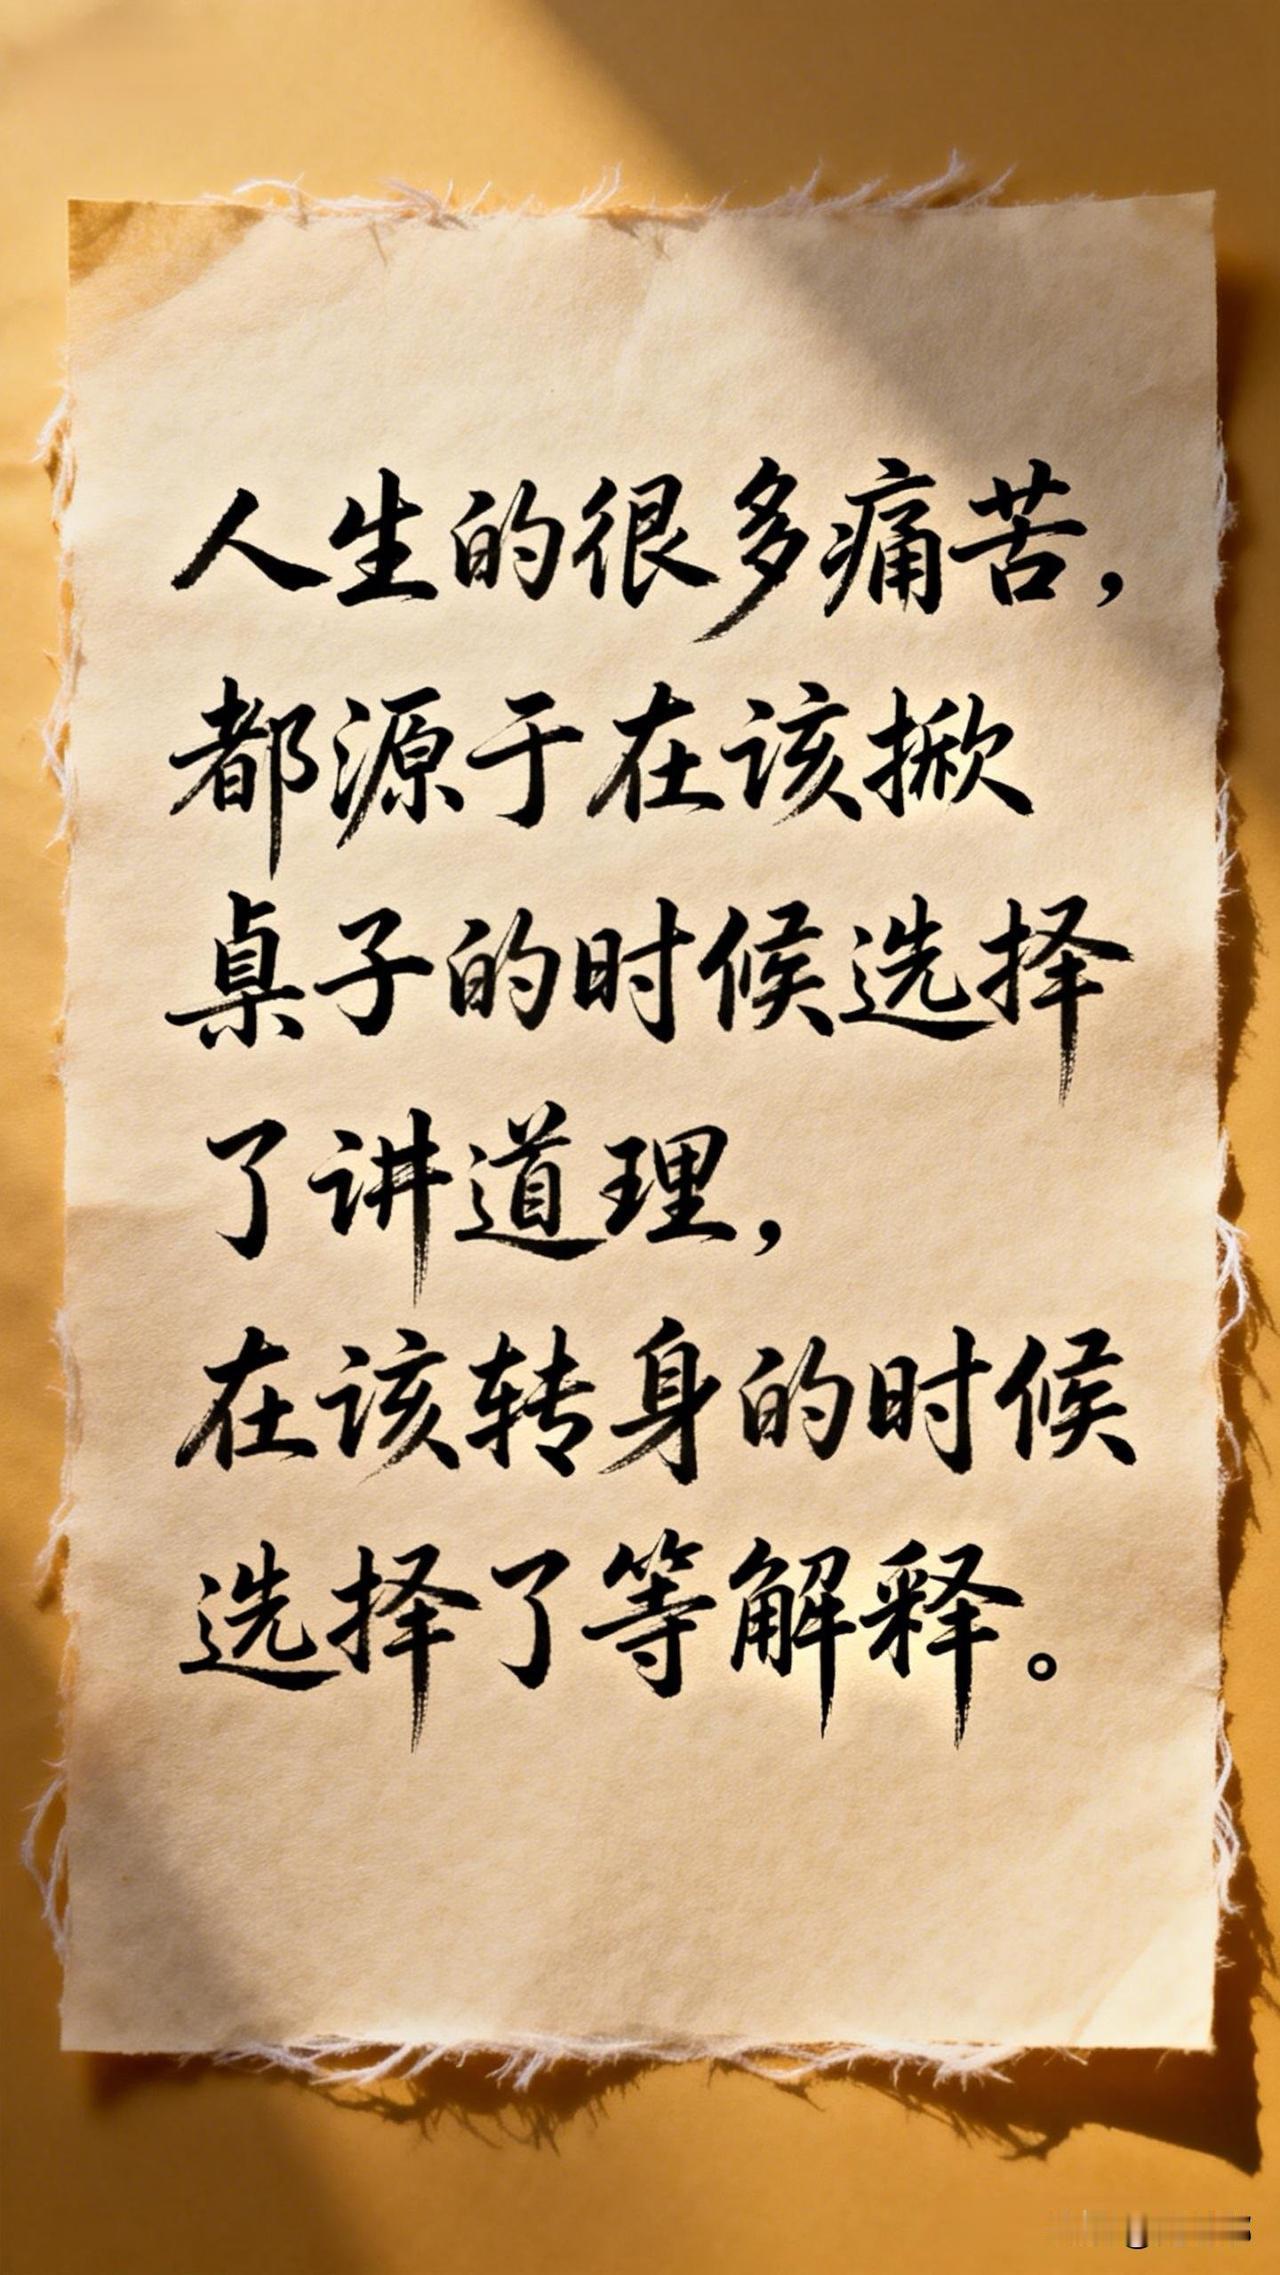 人生的很多痛苦，
都源于在该掀
桌子的时候选择
了讲道理，
在该转身的时候
选择了等解释。